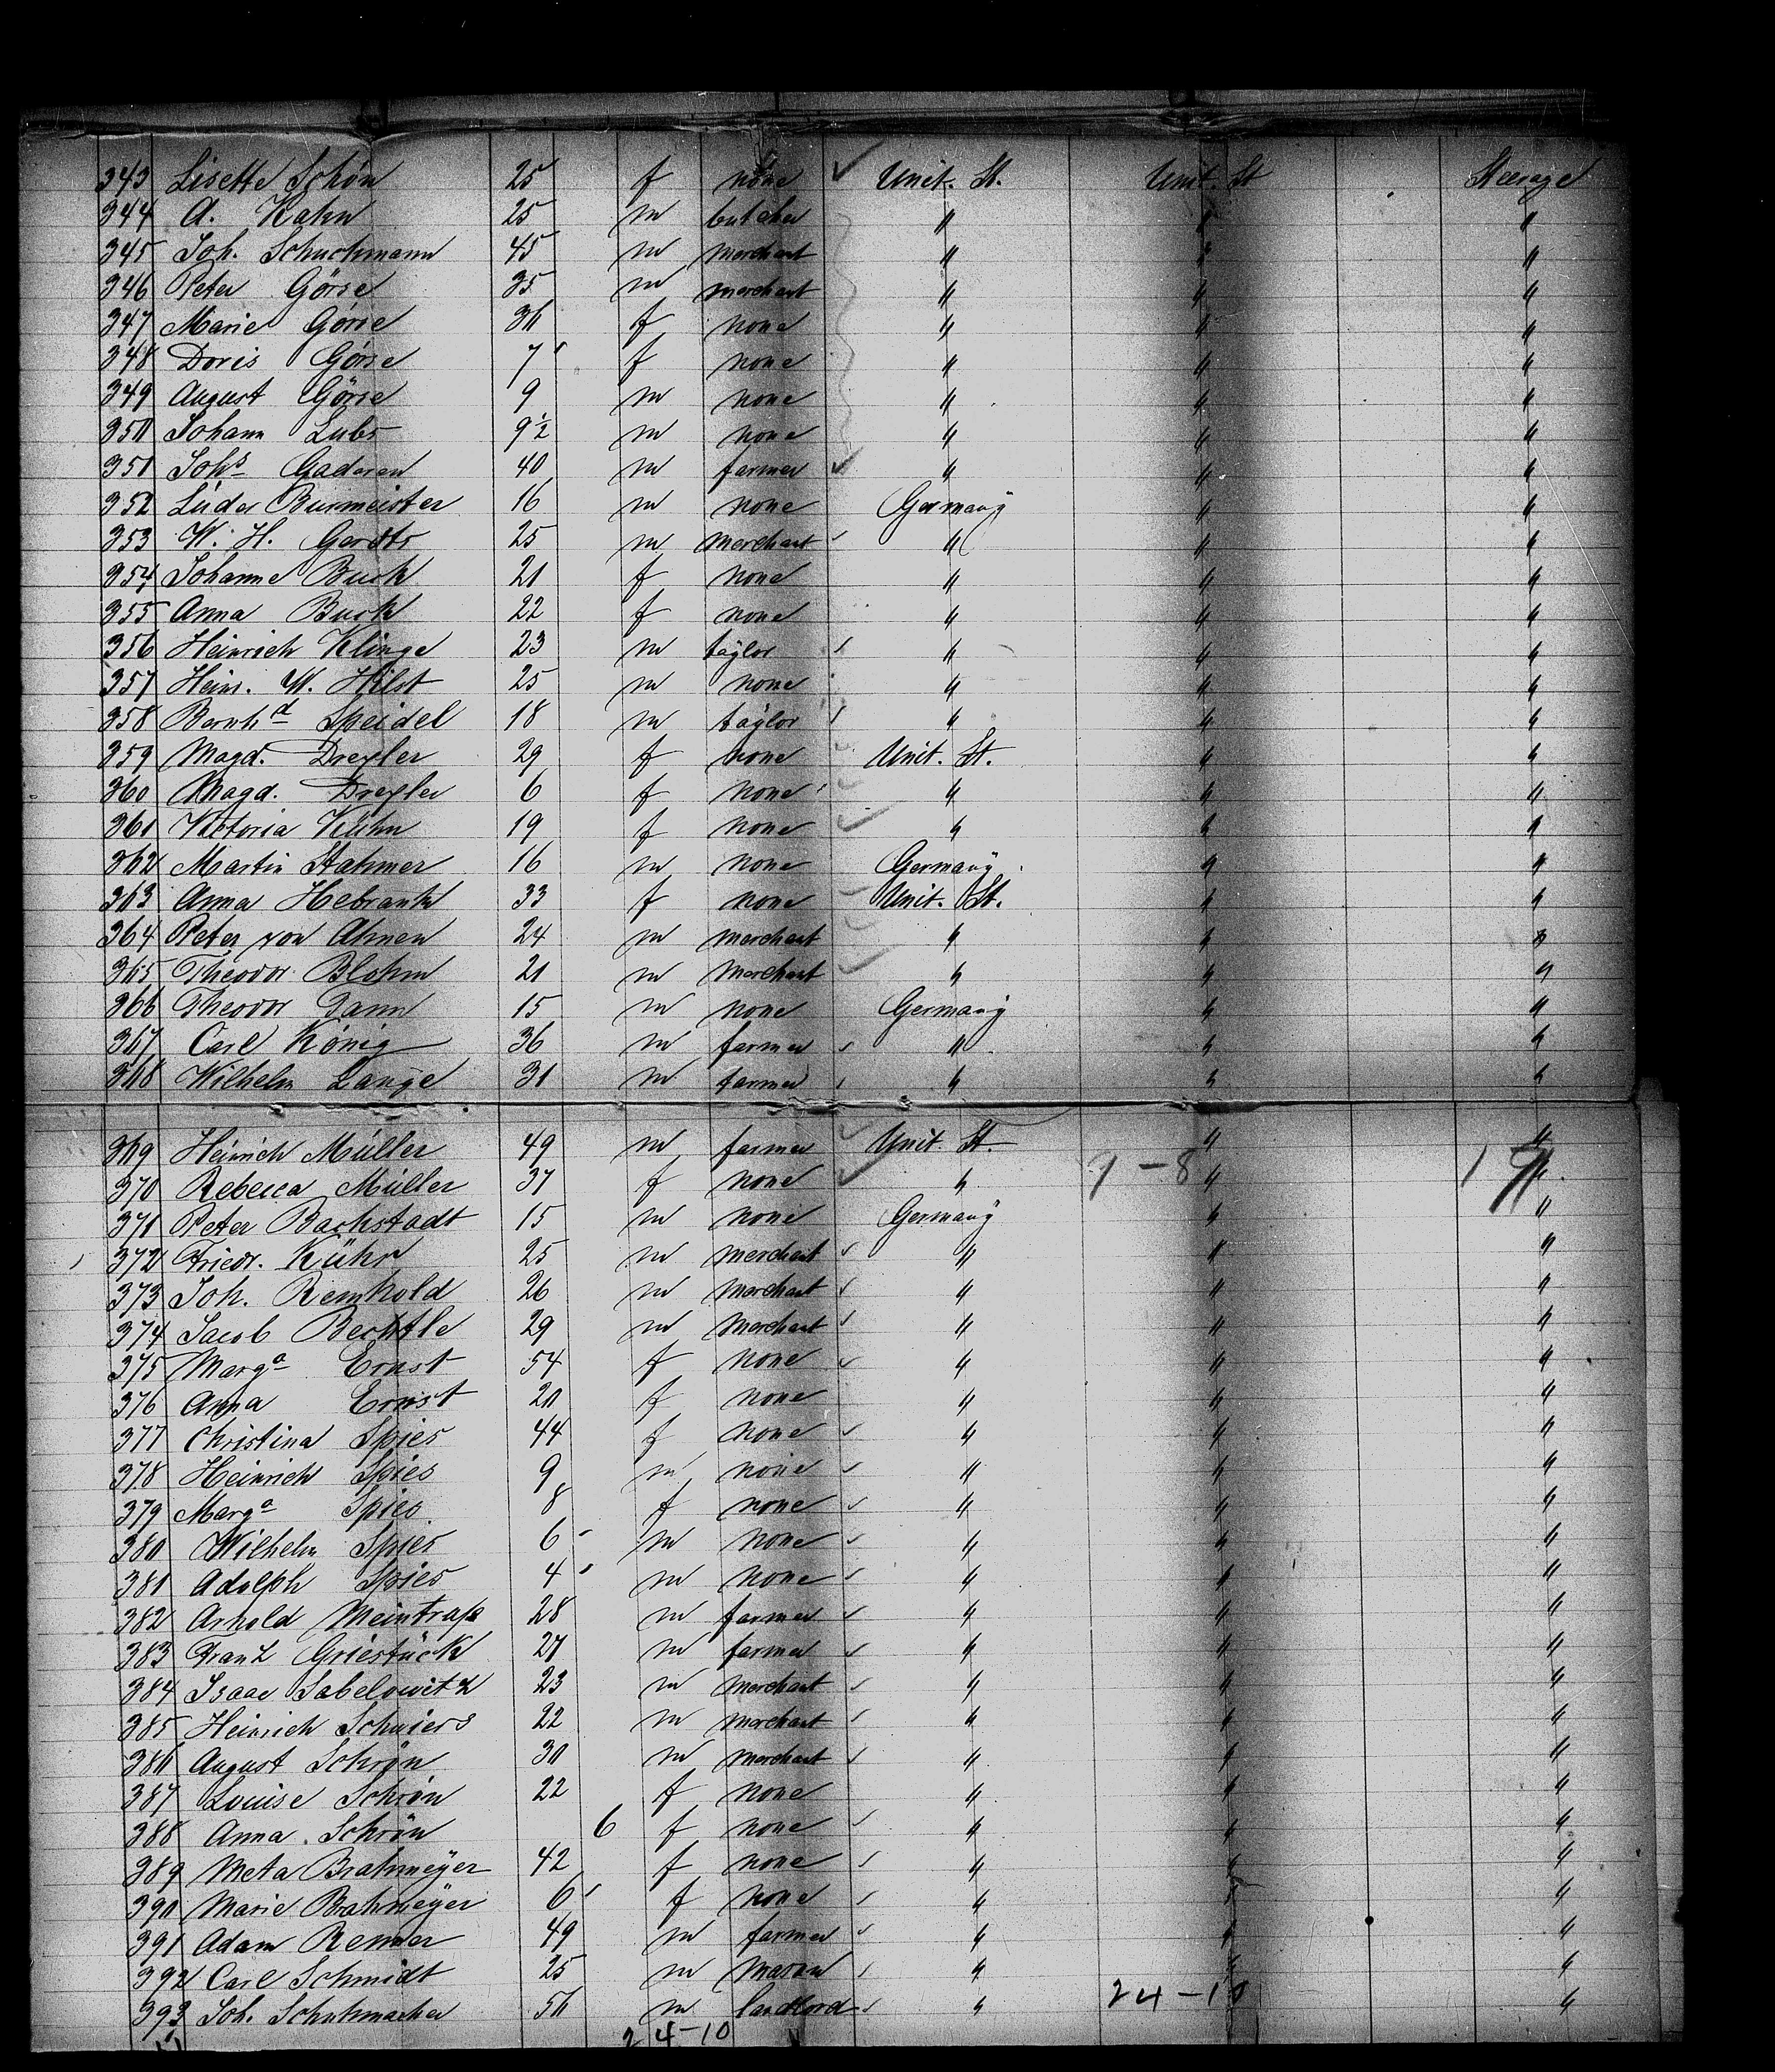 343 Lisette Schön 25 f none Unit. St. Unit. St Steerage
344 A. Kahn 25 m butcher " " "
345 Joh. Schuchmann 45 m merchant " " "
346 Peter Görse 35 m merchant " " "
347 Marie Görse 36 f none " " "
348 Doris Görse 7 f none " " "
349 August Görse 9 m none " " "
350 Johann Lubs 9½ m none " " "
351 Johs Gaderen 40 m farmer " " "
352 Lüder Burmeister 16 m none Germany " "
353 W. H. Gerdts 25 m merchant " " "
354 Johanne Buck 21 f none " " "
355 Anna Buck 22 f none " " "
356 Heinrich Klinge 23 m taylor " " "
357 Heinr. W. Hilst 25 m none " " "
358 Bernhd Speidel 18 m taylor " " "
359 Magd. Drexler 29 f none Unit. St. " "
360 Magd. Drexler 6 f none " " "
361 Victoria Kühn 19 f none " " "
362 Martin Stahmer 16 m none Germany " "
363 Anna Hebrank 33 f none Unit. St. " "
364 Peter von Ahnen 24 m merchant " " "
365 Theodor Blohm 21 m merchant " " "
366 Theodor 15 m none Germany " "
367 Carl König 36 m farmer " " "
368 Wilhelm Lange 31 m farmer " " "
369 Heinrich Müller 49 m farmer Unit. St. " "
370 Rebecca Müller 37 f none " 9-8 " "
371 Peter Bachstadt 15 m none Germany " "
372 Friedr. Kühr 25 m merchant " " "
373 Joh. Reinhold 26 m merchant " " "
374 Jacob Bechtle 29 m merchant " " "
375 Marga Ernst 54 f none " " "
376 Anna Ernst 20 f none " " "
377 Christina Spies 44 f none " " "
378 Heinrich Spies 9 m none " " "
379 Marga Spies 8 f none " " "
380 Wilhelm Spies 6 m none " " "
381 Adolph Spies 4 m none " " "
382 Arnold 28 m farmer " " "
383 Franz Griestück 27 m farmer " " "
384 Isaac Sabelowitz 23 m merchant " " "
385 Heinrich Schuiers 22 m merchant " " "
386 August Schrön 30 m merchant " " "
387 Louise Schrön 22 f none " " "
388 Anna Schrön 6 f none " " "
389 Meta Brahmeyer 42 f none " " "
390 Marie Brahmeyer 6 f none " " "
391 Adam Renner 49 m farmer " " "
392 Carl Schmidt 25 m mason " " "
393 Joh. Schuhmacher 56 m landlord " 24-10 "
24-10